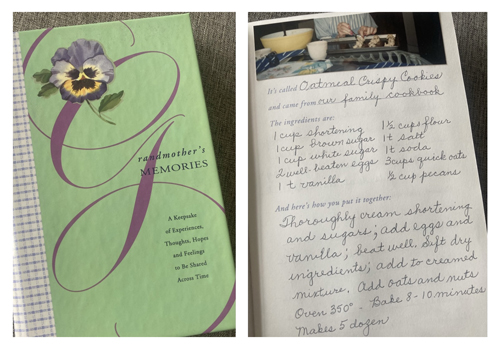 Grandmother's
MEMORIES
A Keepsake
of Experiences,
Thoughts, Hopes
and Feelings
to Be Shared
Across Time
It's called Oatmeal Crispy Cookies
and came from our family cookbook
The ingredients are:
1 cup shortening 1½ cups flour
1 cup brown sugar 1 t salt
1 cup white sugar 1 t soda
2 well-beaten eggs 3 cups quick oats
1 t vanilla ½ cup pecans
And here's how you put it together:
Thoroughly cream shortening
and sugars; add eggs and
vanilla; beat well. Sift dry
ingredients; add to creamed
mixture. Add oats and nuts
Oven 350° - Bake 8-10 minutes
Makes 5 dozen